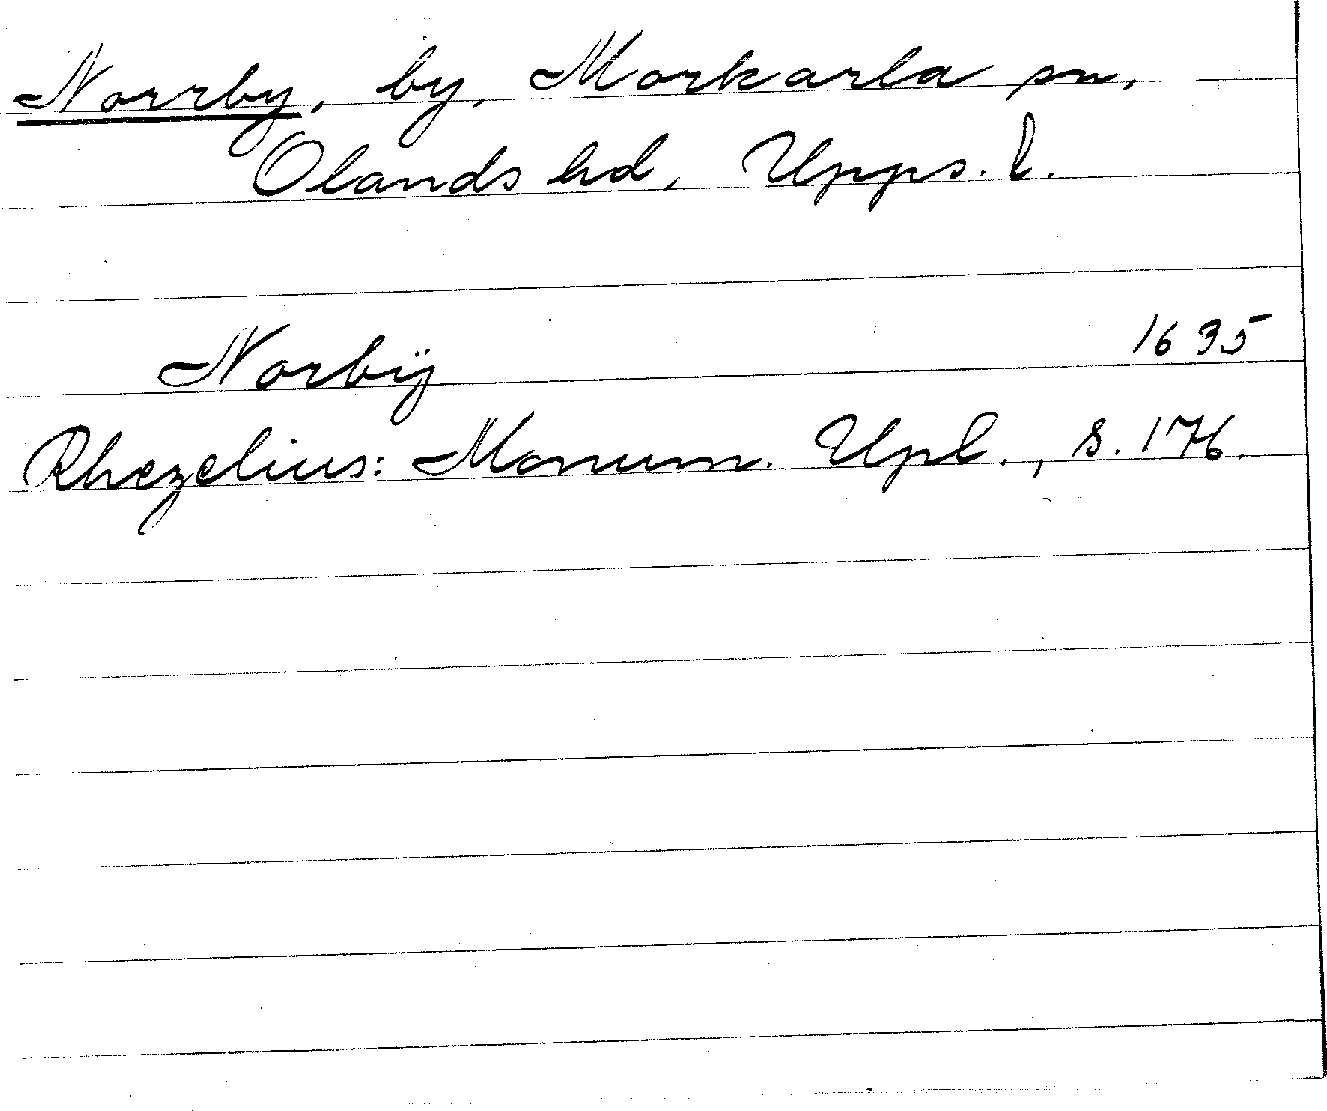 Norrby, by, Morkarla sn,
Olands hd, Upps. l.
Norbÿ 1635
Rhezelius: Monum. Upl., s. 176.